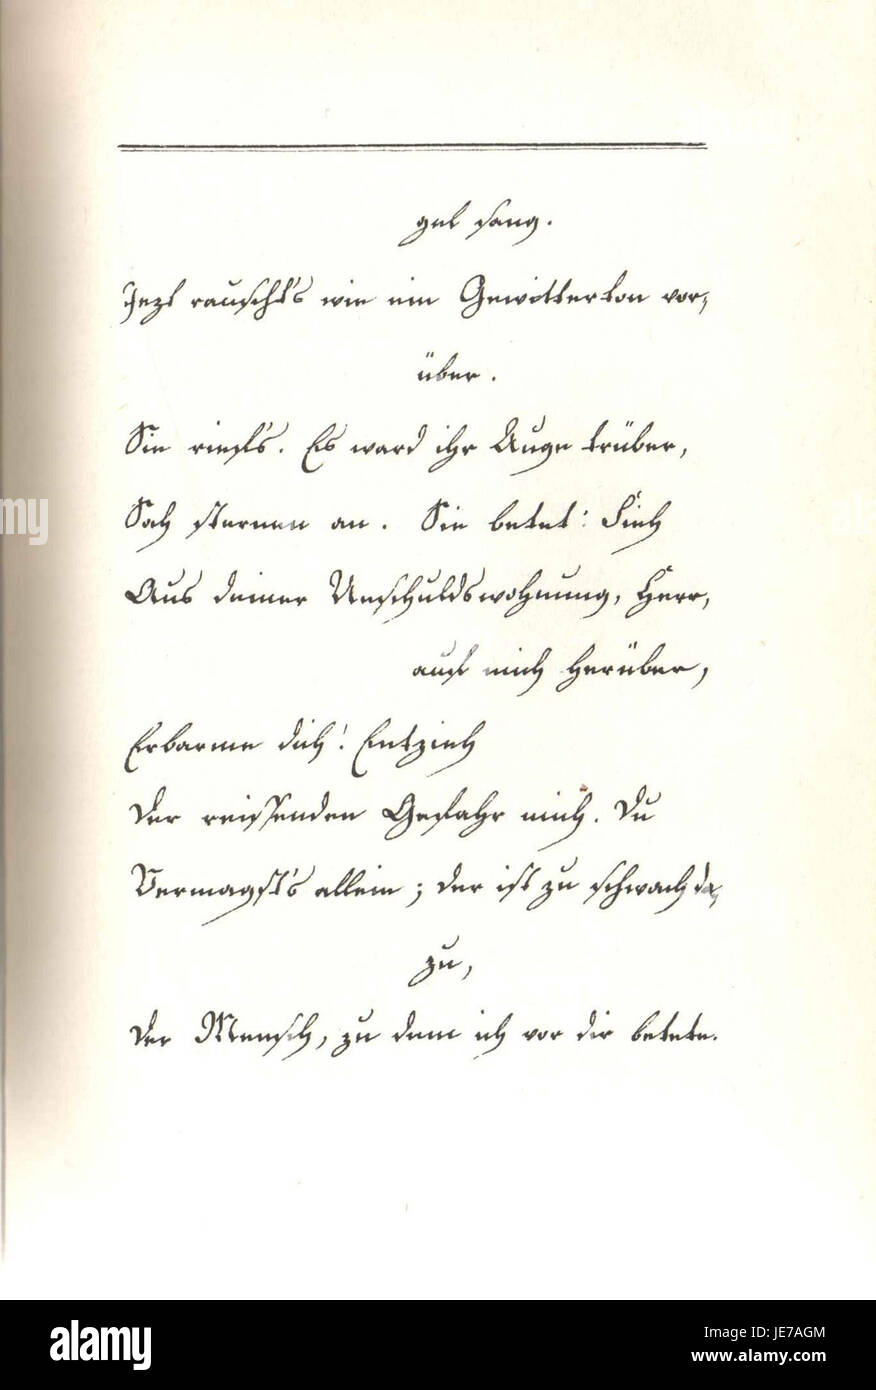 gel sang.
Jezt rauscht's wie ein Gewitterton vor-
über.
Sie rief's. Es ward ihr Auge trüber,
Sah sternen an. Sie betet: Sieh
Aus deiner Unschuldswohnung, Herr,
auf mich herüber,
Erbarme dich! Entzieh
der reissenden Gefahr mich. Du
Vermagst's allein; der ist zu schwach da-
zu,
der Mensch, zu dem ich vor dir betete.
my
alamy
Image ID: JE7AGM
www.alamy.com